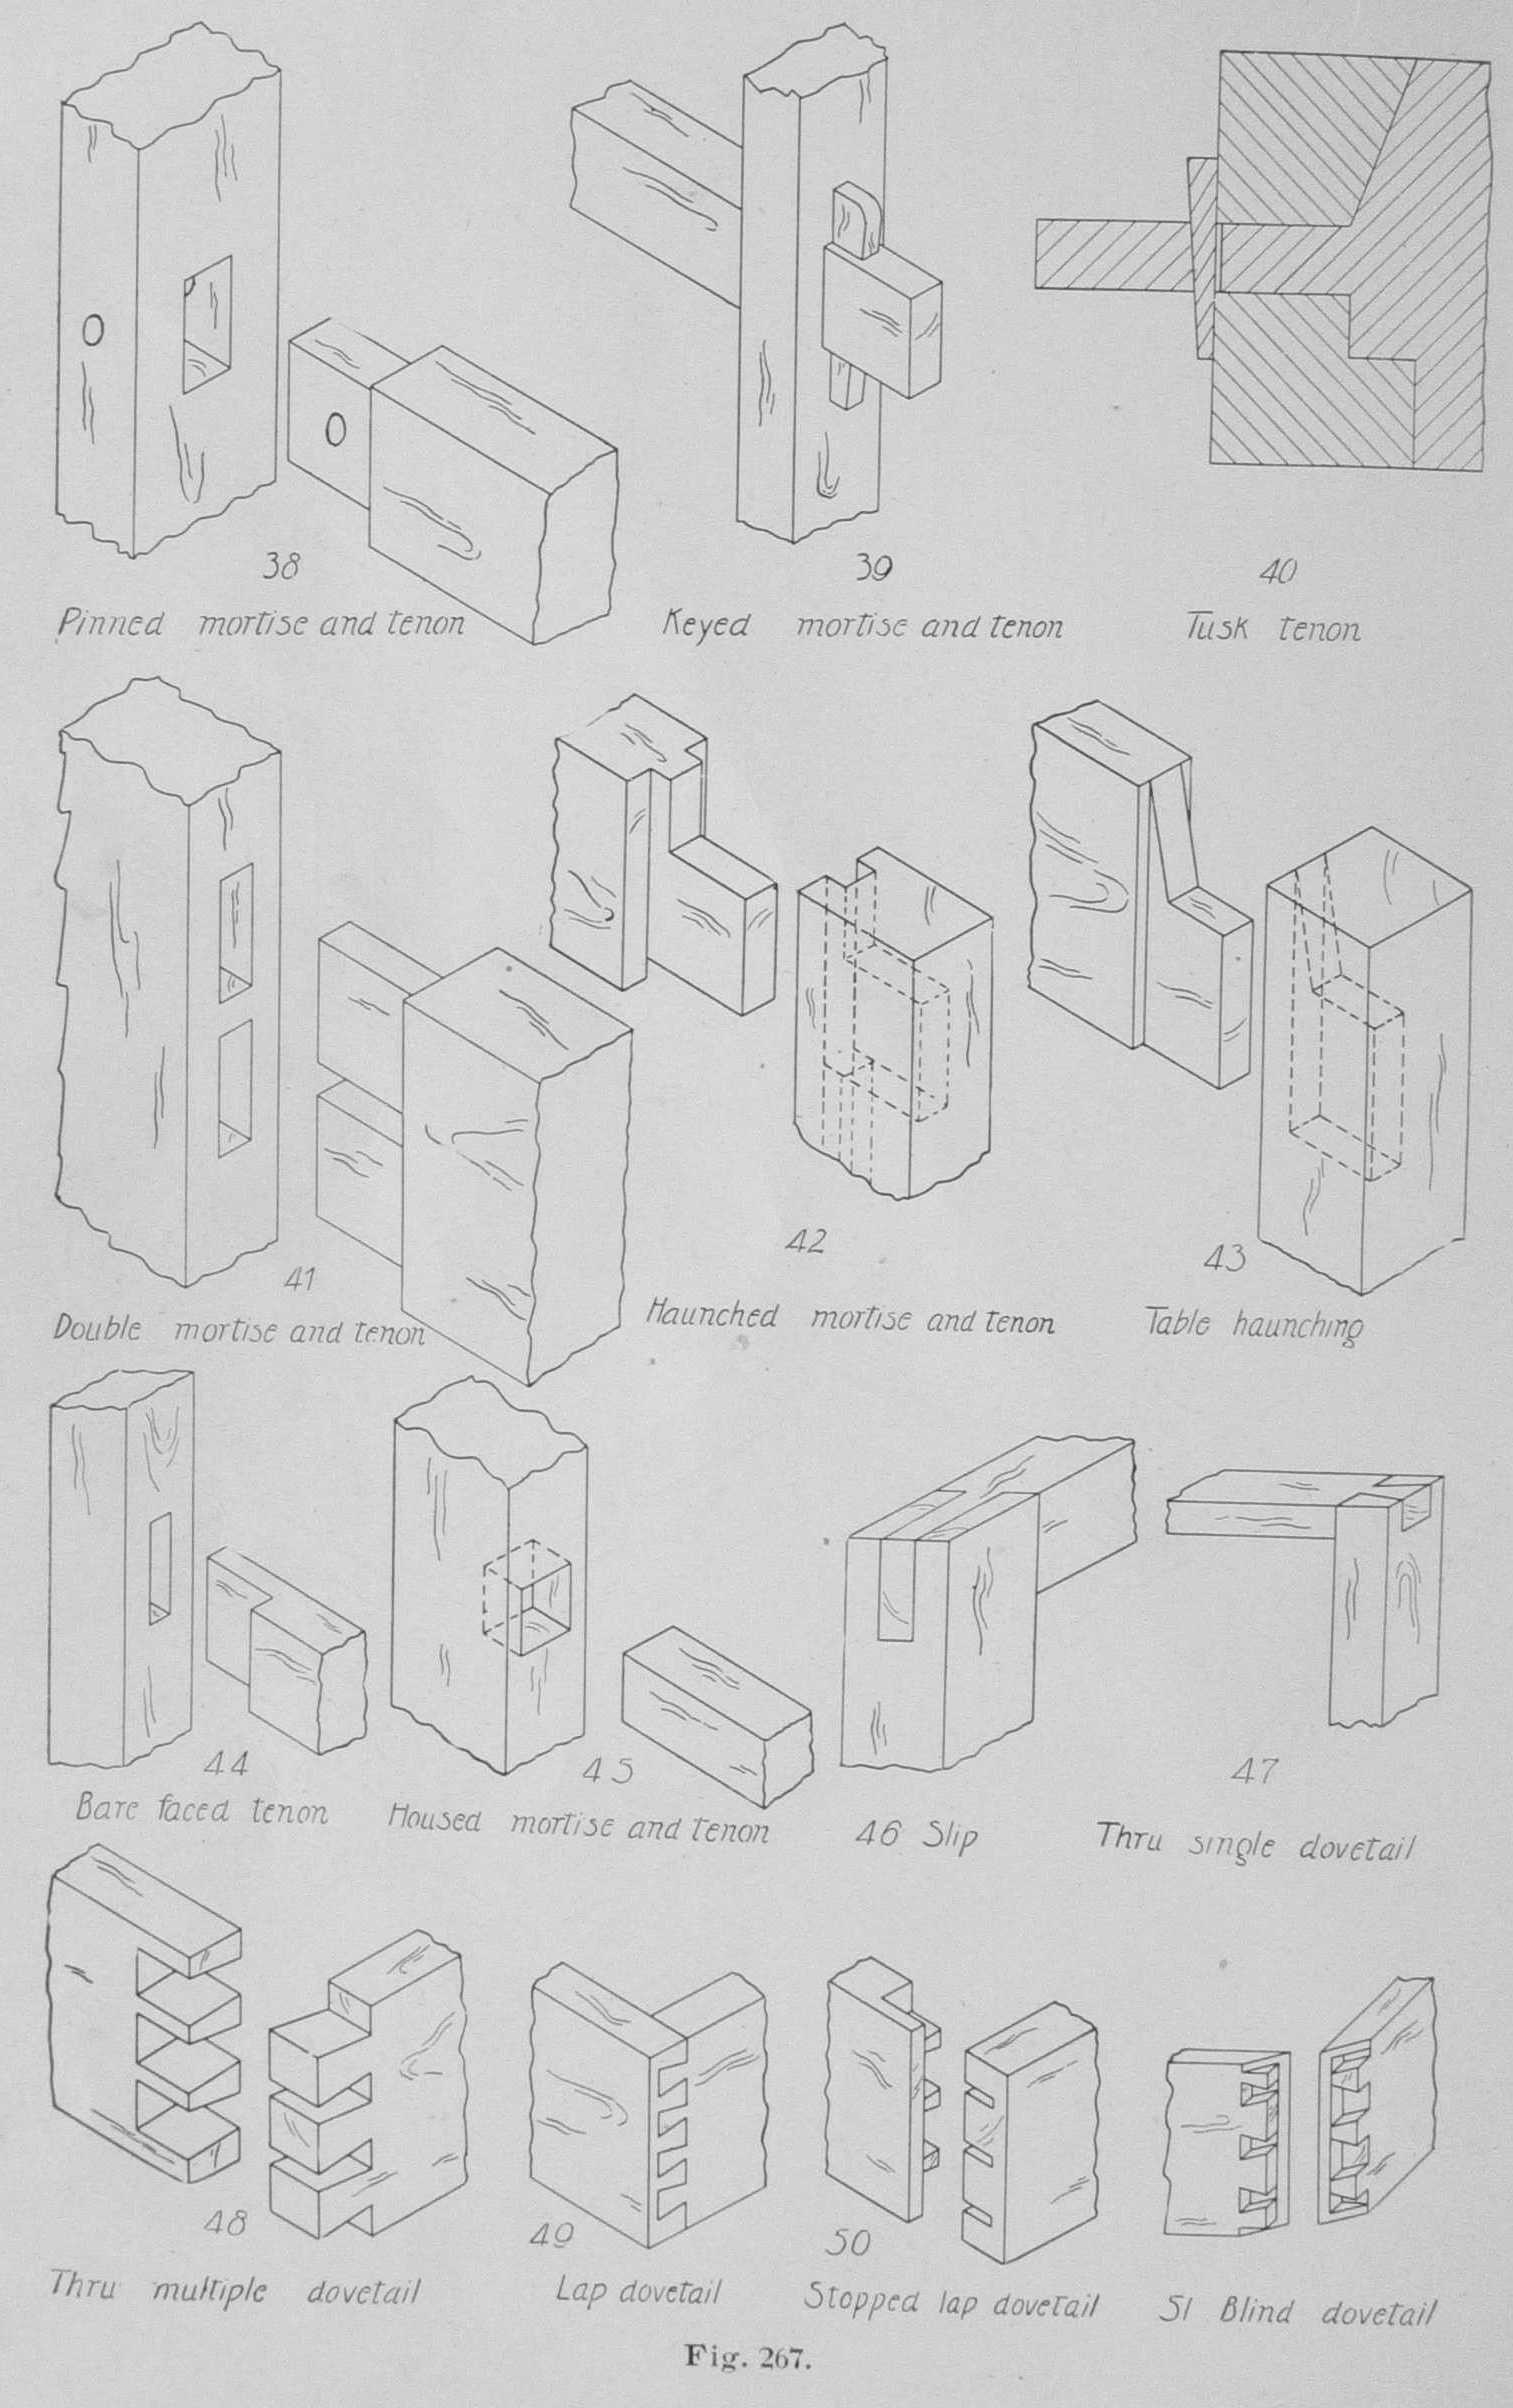 38
39
40
Pinned mortise and tenon
Keyed mortise and tenon
Tusk tenon
41
42
43
Double mortise and tenon
Haunched mortise and tenon
Table haunching
44
45
47
Bare faced tenon
Housed mortise and tenon
46 Slip
Thru single dovetail
48
49
50
Thru multiple dovetail
Lap dovetail
Stopped lap dovetail
51 Blind dovetail
Fig. 267.